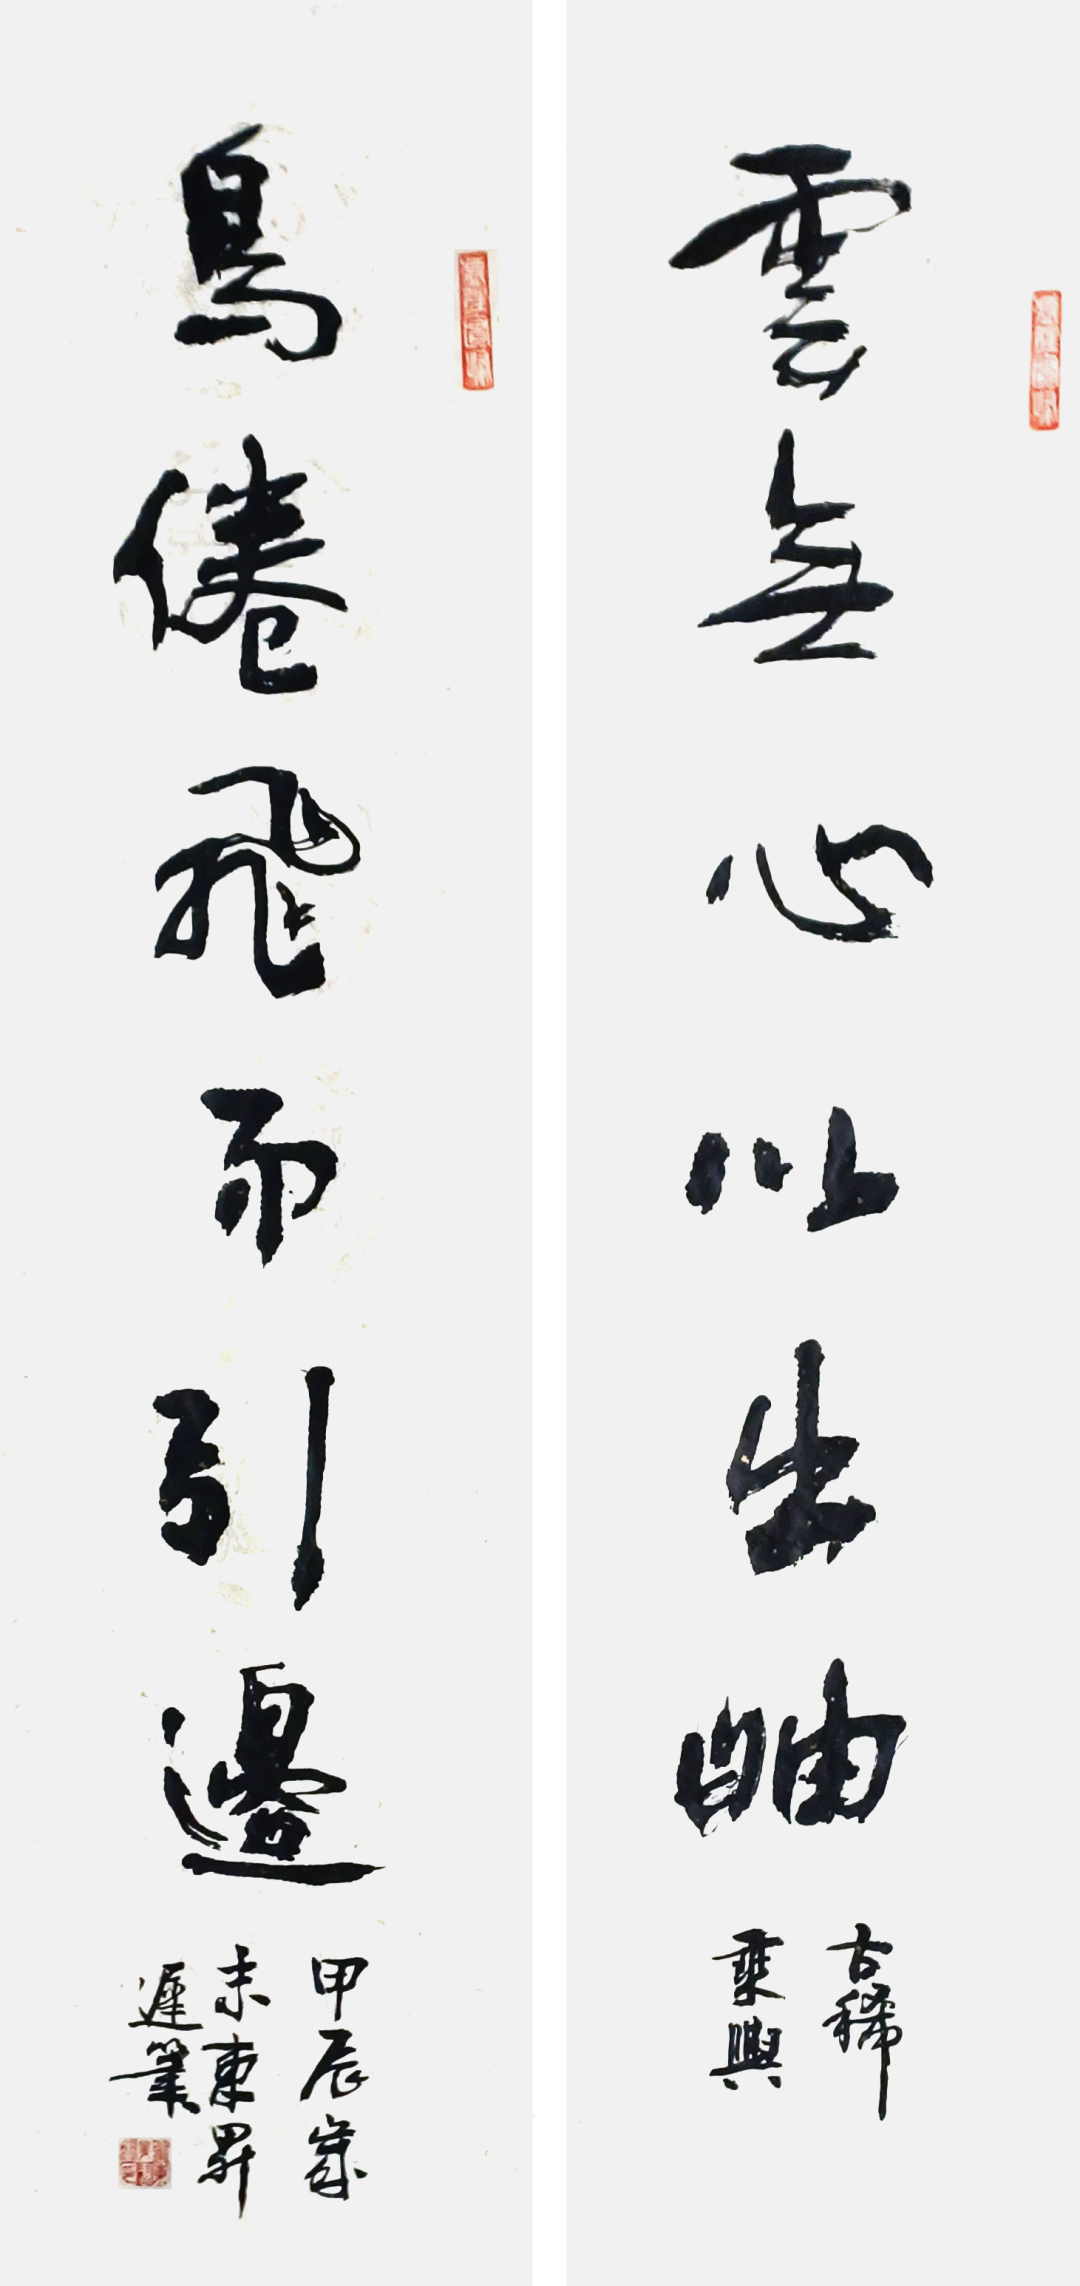 雲無心以出岫
古稀
乘興
鳥倦飛而引邊
甲辰歲
東昇
遲筆